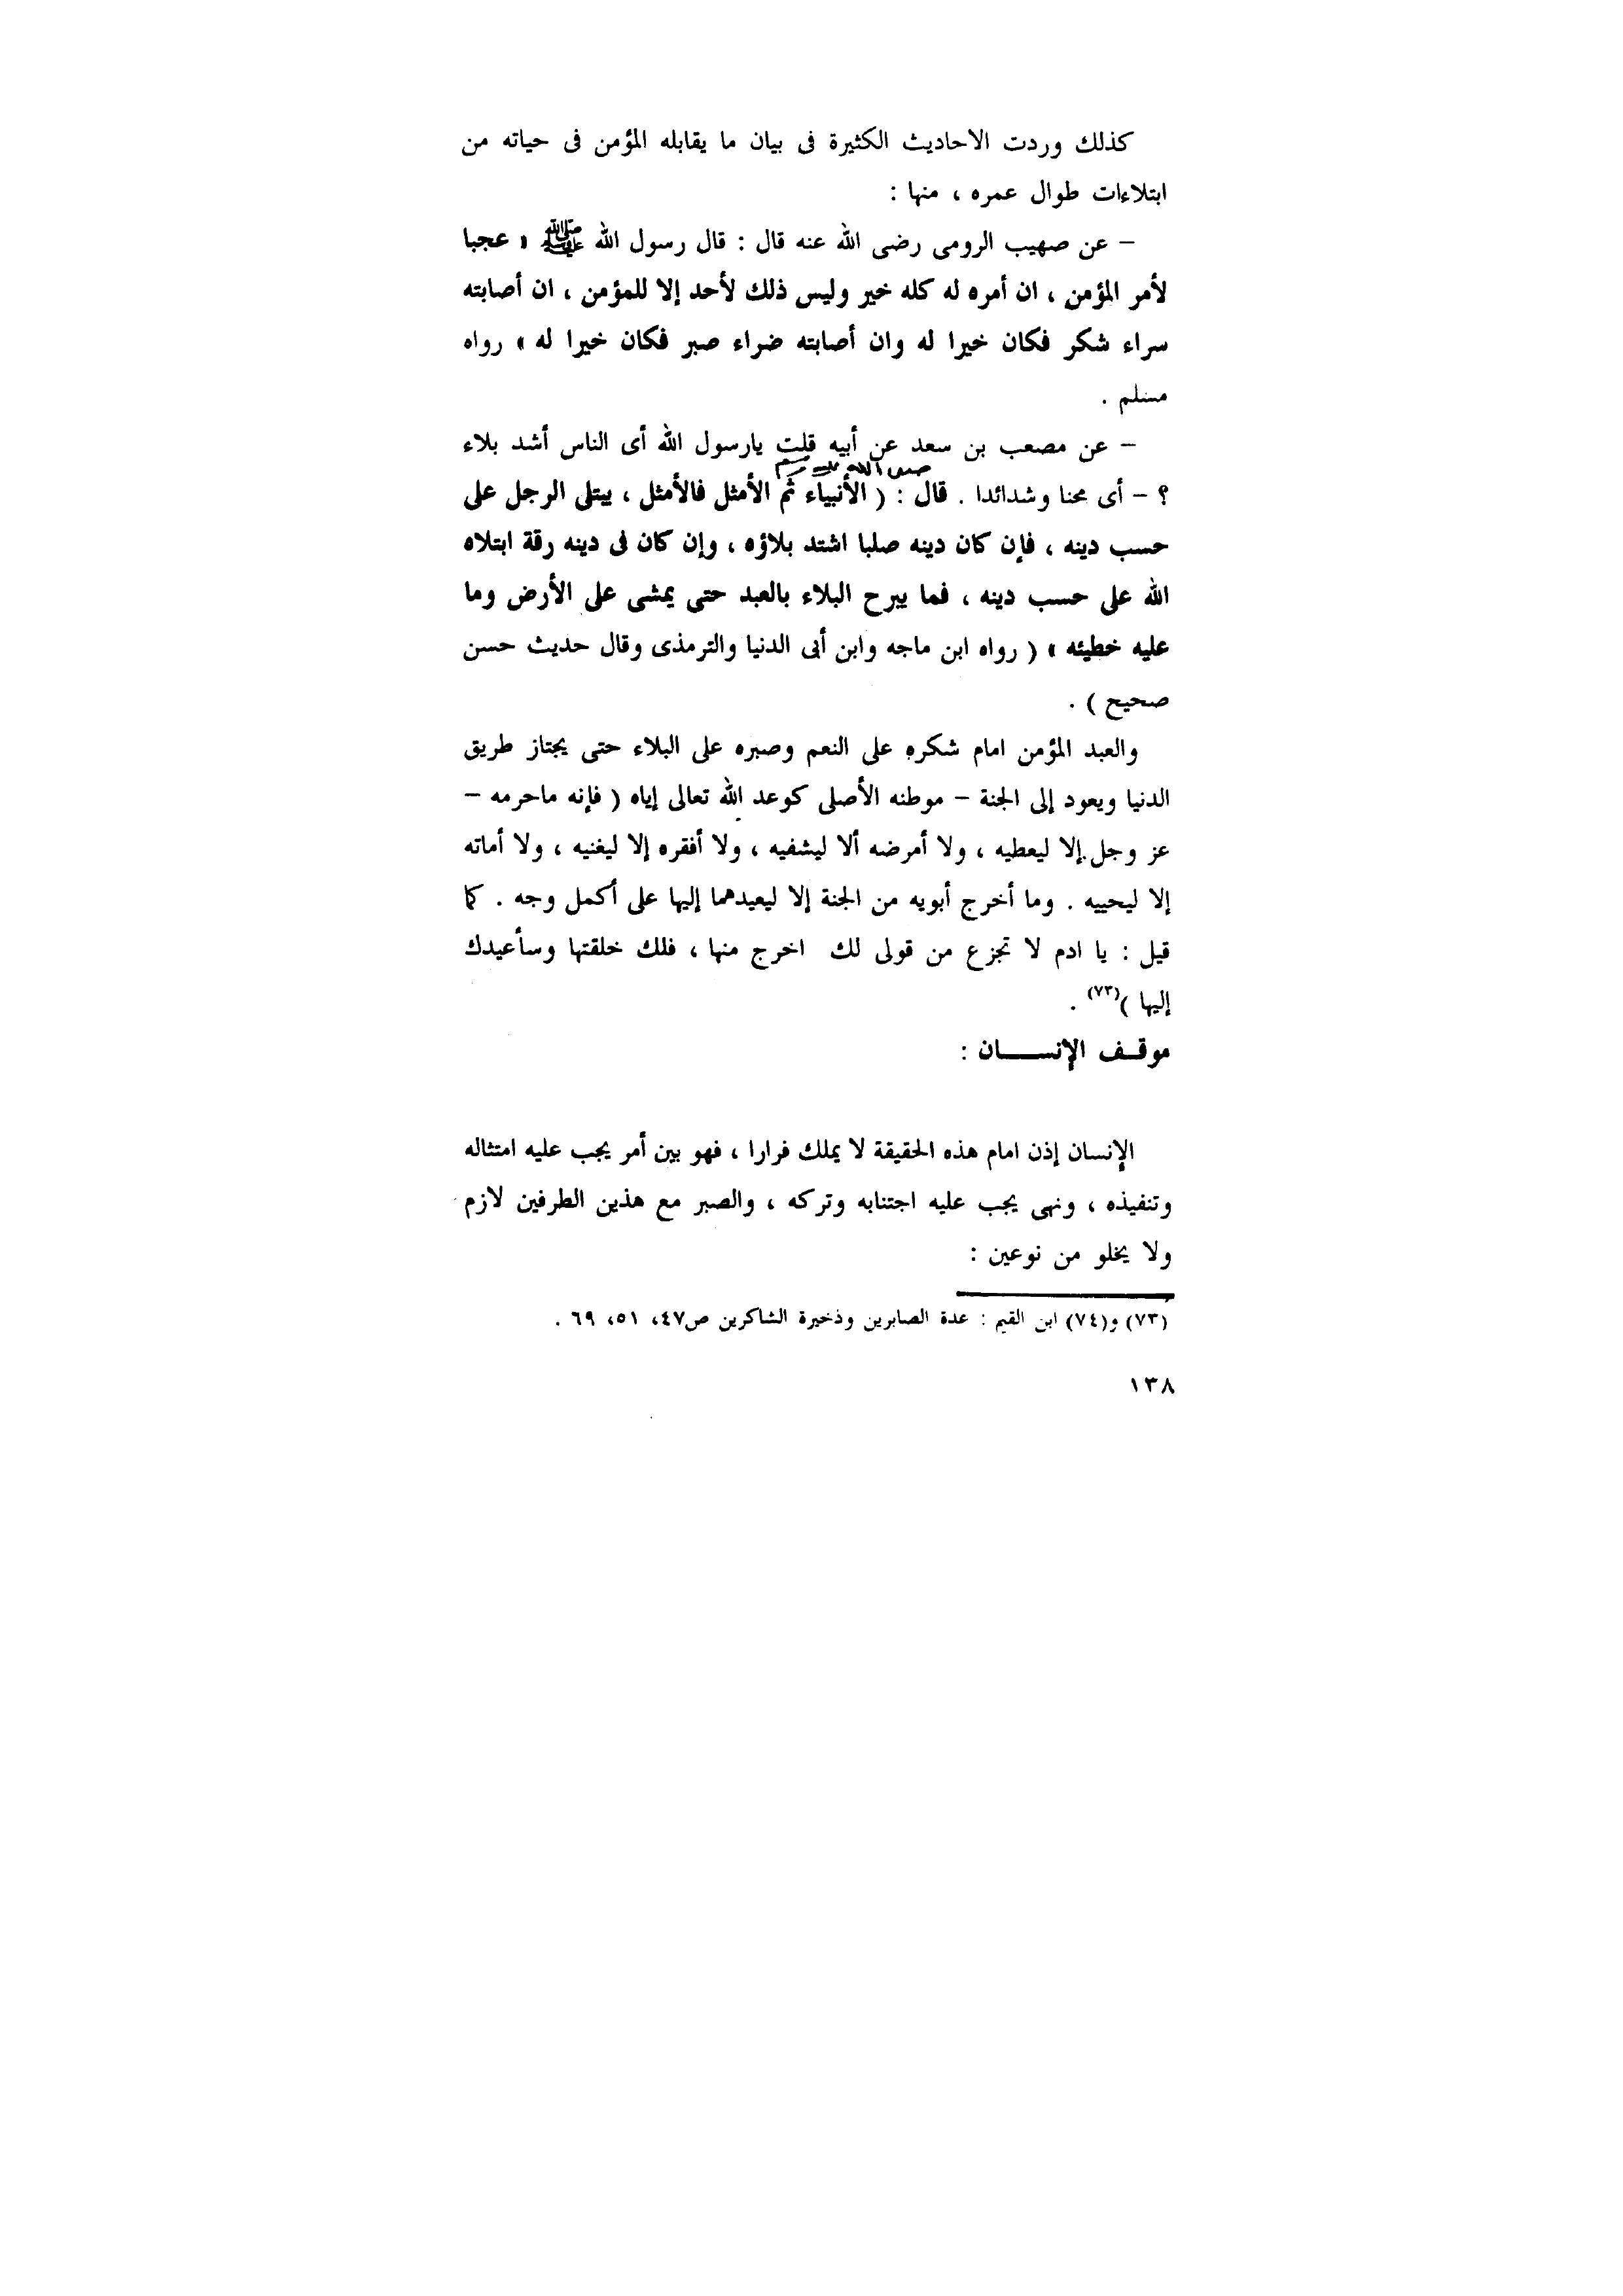 كذلك وردت الاحاديث الكثيرة فى بيان ما يقابله المؤمن فى حياته من
ابتلاءات طوال عمره ، منها :
– عن صهيب الرومى رضى الله عنه قال : قال رسول الله ﷺ « عجبا
لأمر المؤمن ، ان أمره له كله خير وليس ذلك لأحد إلا للمؤمن ، ان أصابته
سراء شكر فكان خيرا له وان أصابته ضراء صبر فكان خيرا له » رواه
مسلم .
– عن مصعب بن سعد عن أبيه قلت يارسول الله أى الناس أشد بلاء
صلى الله عليه وسلم
؟ – أى محنا وشدائدا . قال : ( الأنبياء ثم الأمثل فالأمثل ، يبتلى الرجل على
حسب دينه ، فإن كان دينه صلبا اشتد بلاؤه ، وإن كان فى دينه رقة ابتلاه
الله على حسب دينه ، فما يبرح البلاء بالعبد حتى يمشى على الأرض وما
عليه خطيئه » ( رواه ابن ماجه وابن أبى الدنيا والترمذى وقال حديث حسن
صحيح ) .
والعبد المؤمن امام شكره على النعم وصبره على البلاء حتى يجتاز طريق
الدنيا ويعود إلى الجنة – موطنه الأصلى كوعد الله تعالى إياه ( فإنه ماحرمه –
عز وجل إلا ليعطيه ، ولا أمرضه ألا ليشفيه ، ولا أفقره إلا ليغنيه ، ولا أماته
إلا ليحييه . وما أخرج أبويه من الجنة إلا ليعيدهما إليها على أكمل وجه . كما
قيل : يا ادم لا تجزع من قولى لك اخرج منها ، فلك خلقتها وسأعيدك
إليها )(٧٣) .
موقف الإنسان :
الإنسان إذن امام هذه الحقيقة لا يملك فرارا ، فهو بين أمر يجب عليه امتثاله
وتنفيذه ، ونهى يجب عليه اجتنابه وتركه ، والصبر مع هذين الطرفين لازم
ولا يخلو من نوعين :
(٧٣) و(٧٤) ابن القيم : عدة الصابرين وذخيرة الشاكرين ص٤٧، ٥١، ٦٩ .
١٣٨